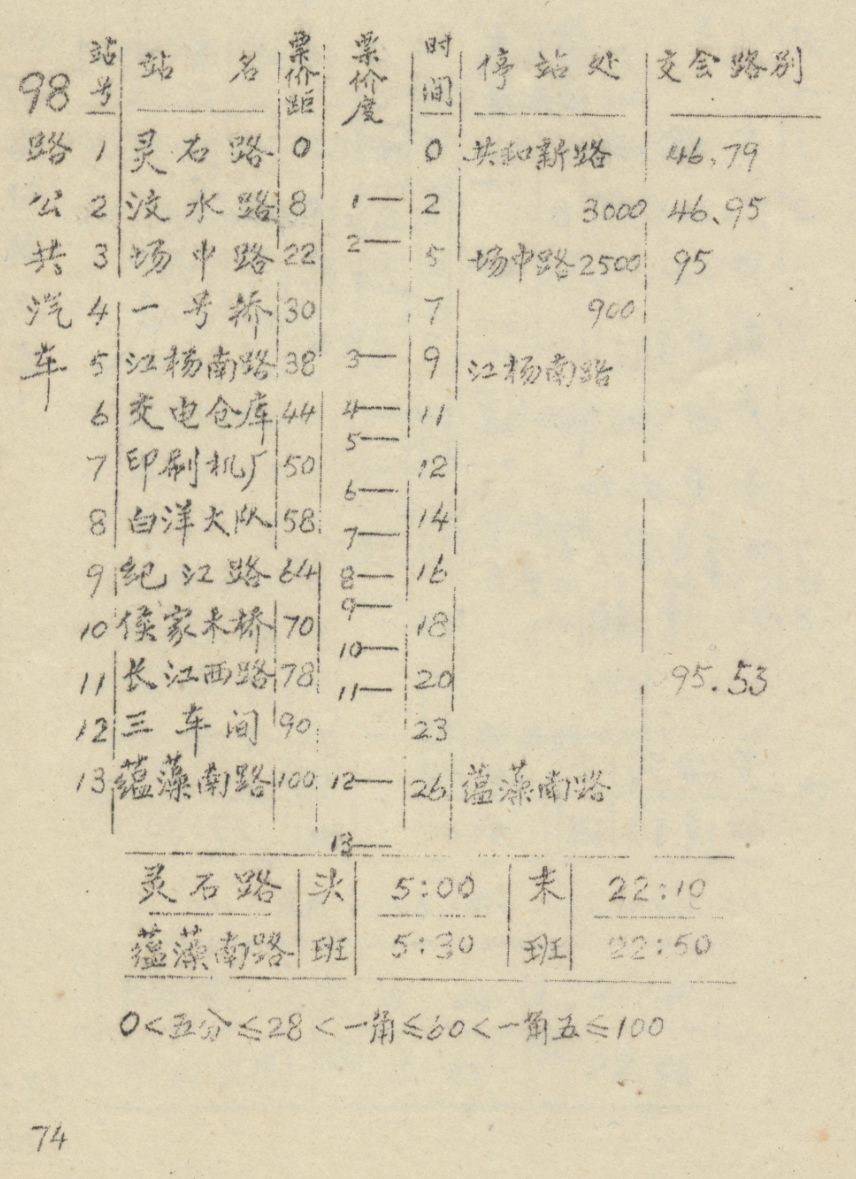 98路公共汽车
站号 站名 票价距 票价度 时间 停站处 交会路别
1 灵石路 0 0 共和新路 46、79
2 汶水路 8 1— 2 3000 46、95
3 场中路 22 2— 5 场中路2500 95
4 一号桥 30 7 900
5 江杨南路 38 3— 9 江杨南路
6 交电仓库 44 4— 11
5—
7 印刷机厂 50 12
6—
8 白洋大队 58 7— 14
9 纪江路 64 8— 16
9—
10 侯家木桥 70 18
10—
11 长江西路 78 11— 20 95.53
12 三车间 90 23
13 蕴藻南路 100 12— 26 蕴藻南路
13—
灵石路 头 5:00 末 22:10
蕴藻南路 班 5:30 班 22:50
0<五分≤28<一角≤60<一角五≤100
74